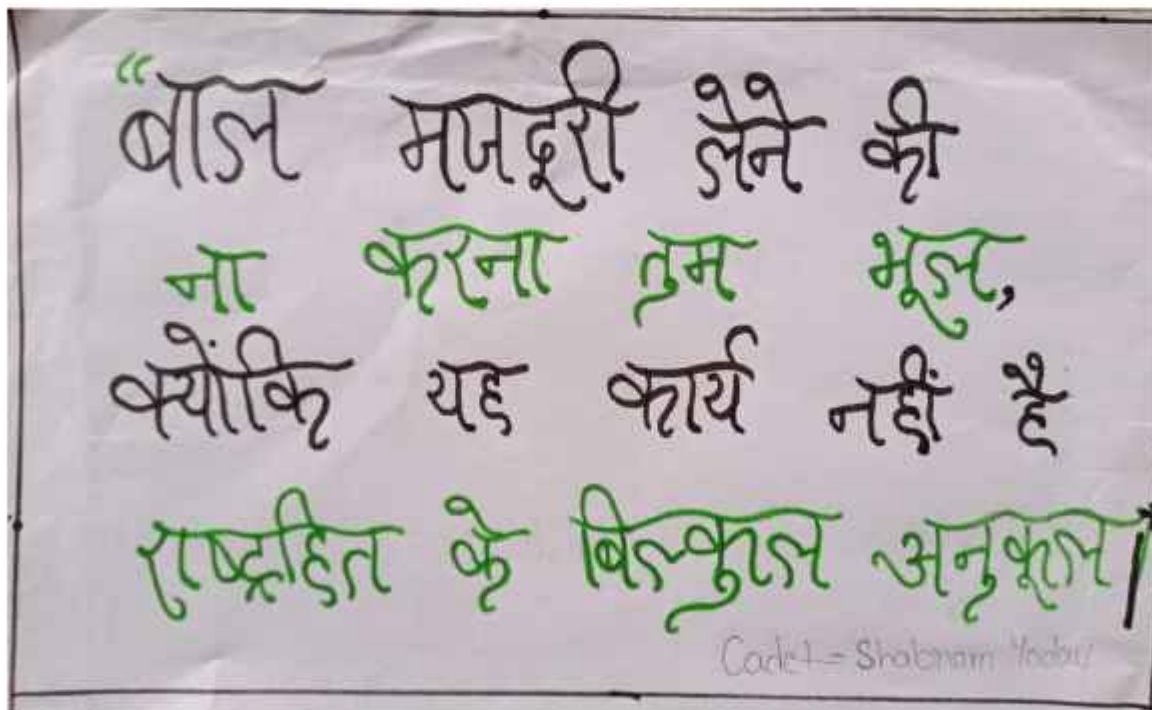 “बाल मजदूरी लेने की
ना करना तुम भूल,
क्योंकि यह कार्य नहीं है
राष्ट्रहित के बिल्कुल अनुकूल।
Cadet - Shabnam Yadav